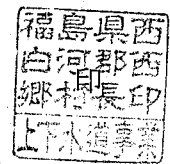 福島県西
白河郡西
郷村長印
上下水道事業
印